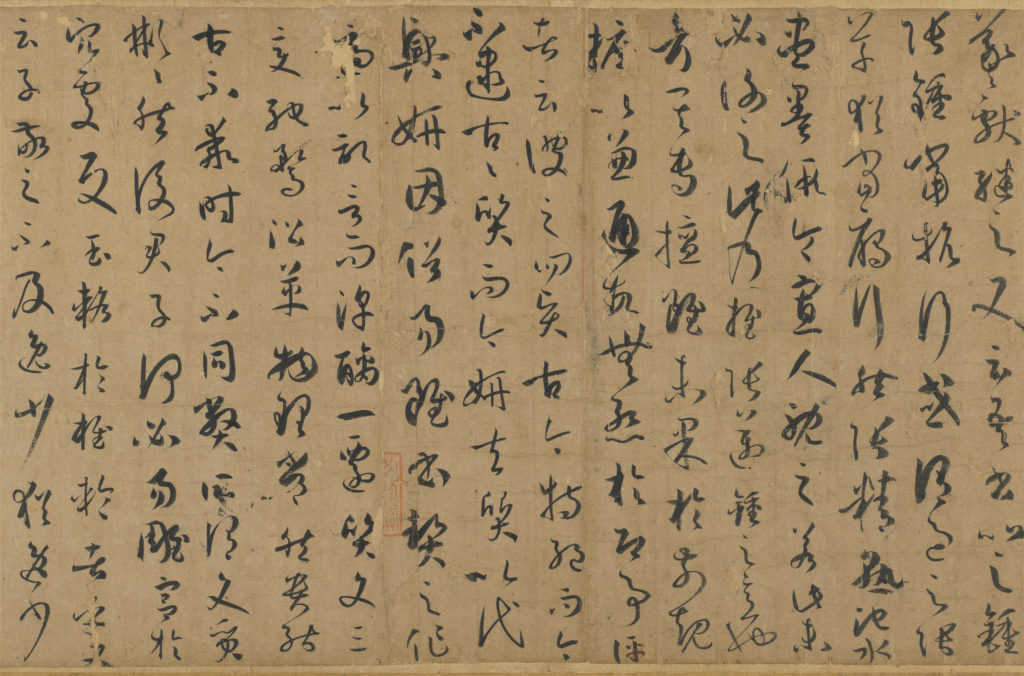 羲獻繼之又云吾書比之鍾
張鍾當抗行或謂過之張
草猶當雁行然張精熟池水
盡墨假令寡人耽之若此未
必謝之此乃推張邁鍾之意也
考其專擅雖未果於前規
摭以兼通故無慚於即事評
者云彼之四賢古今特絕而今
不逮古〻質而今妍夫質以代
興妍因俗易雖書契之作
適以記言而淳醨一遷質文三
變馳騖沿革物理常然貴能
古不乖時今不同弊所謂文質
彬〻然後君子何必易雕宮於
穴處反玉輅於椎輪者乎又
云子敬之不及逸少猶逸少